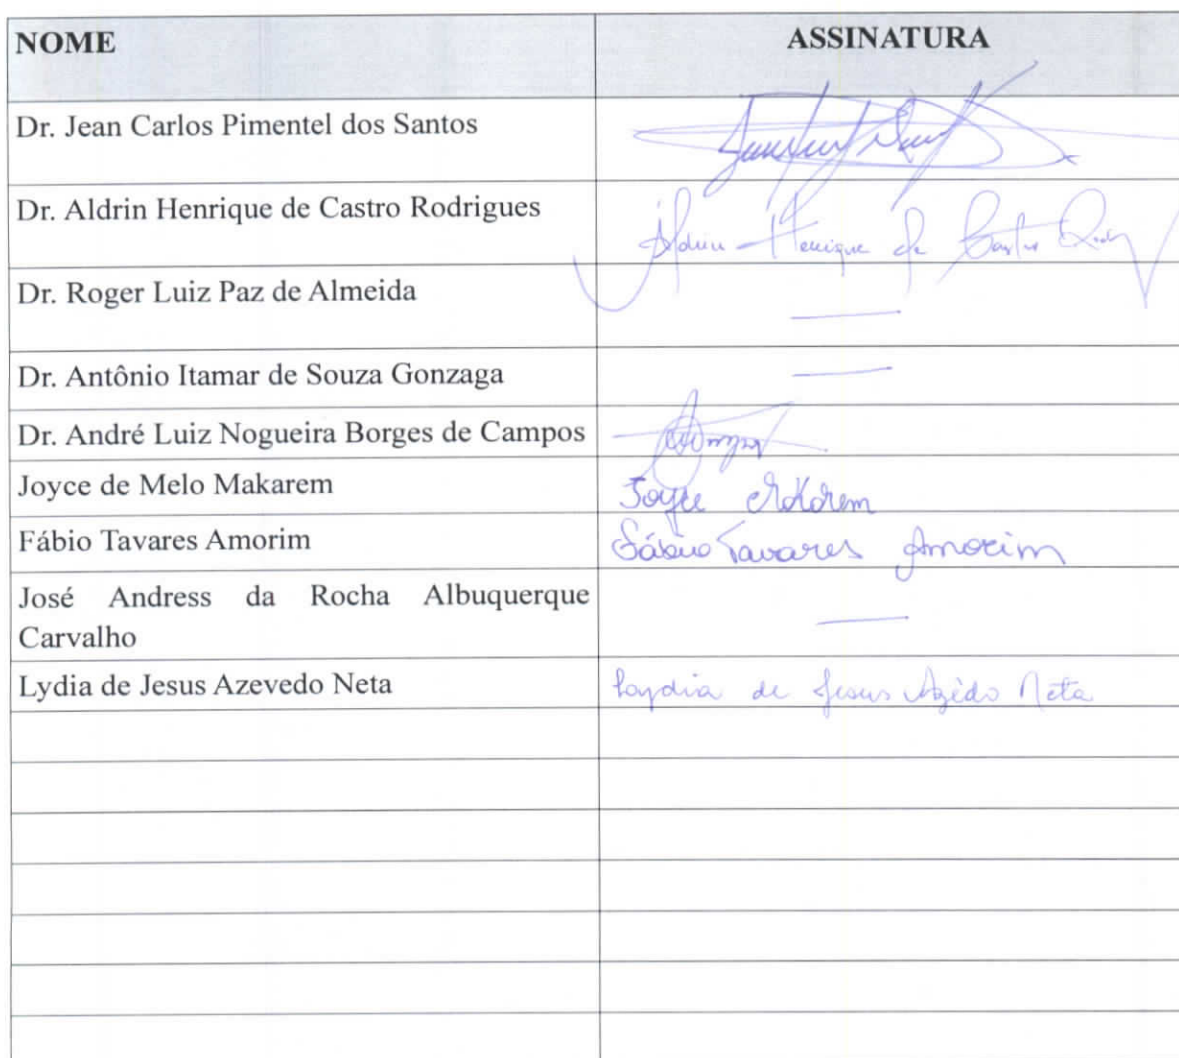 NOME ASSINATURA
Dr. Jean Carlos Pimentel dos Santos
Dr. Aldrin Henrique de Castro Rodrigues Aldrin Henrique de Castro
Dr. Roger Luiz Paz de Almeida
Dr. Antônio Itamar de Souza Gonzaga
Dr. André Luiz Nogueira Borges de Campos
Joyce de Melo Makarem Joyce Makarem
Fábio Tavares Amorim Fábio Tavares Amorim
José Andress da Rocha Albuquerque
Carvalho
Lydia de Jesus Azevedo Neta Lydia de Jesus Azêdo Neta